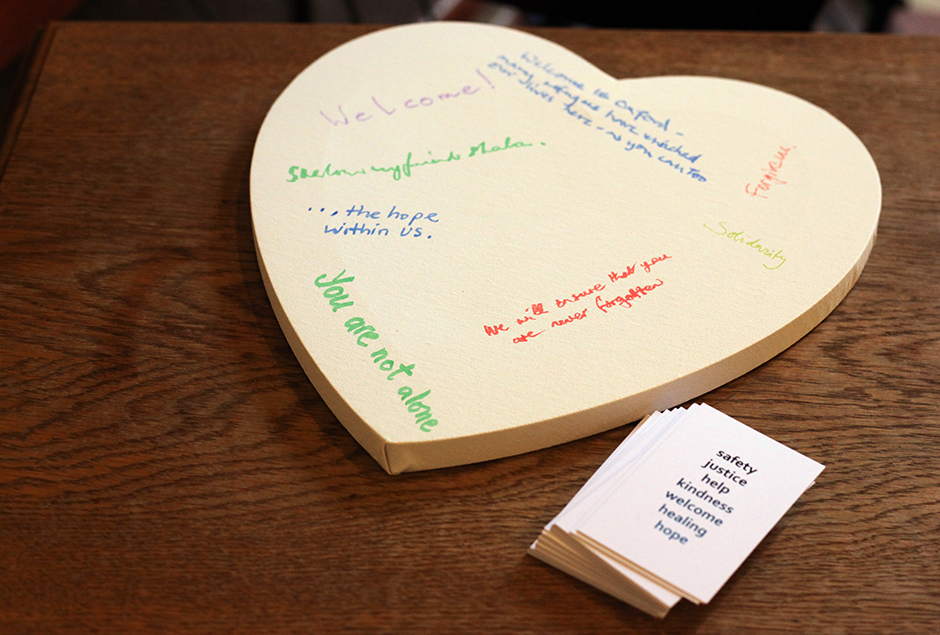 Welcome!
Welcome to Oxford -
many refugees have enriched
our lives here - as you can too
my friends
Forgiveness
Solidarity
... the hope
within us.
We will ensure that you
are never forgotten
You are not alone
safety
justice
help
kindness
welcome
healing
hope